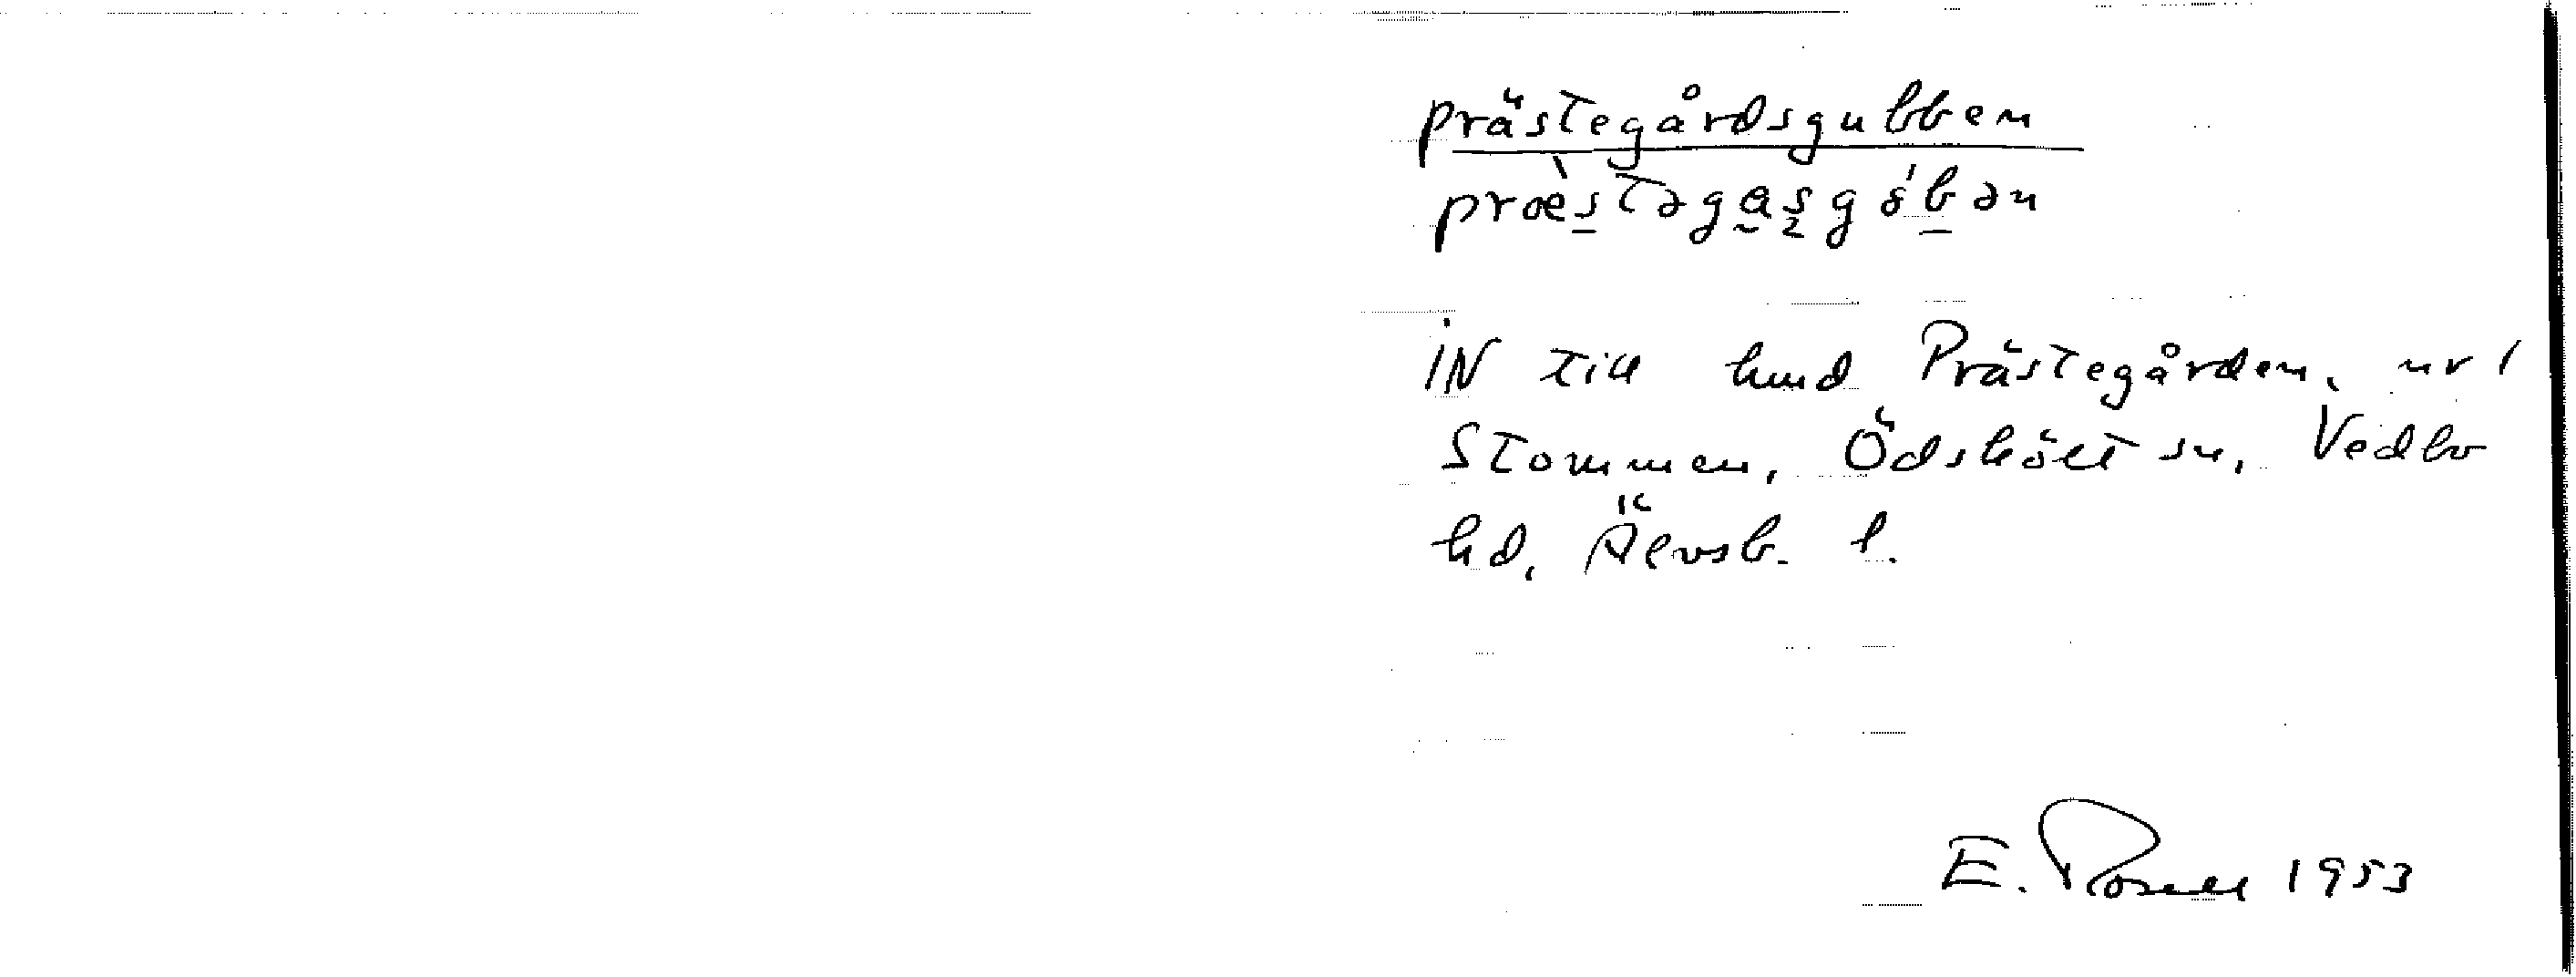 prästegårdsgubben
præ̀stəgasgɔ́bən
IN till hmd Prästegården, nr 1
Stommen, Ödskölt sn, Vedbo
hd, Älvsb. l.
E. Rosell 1953